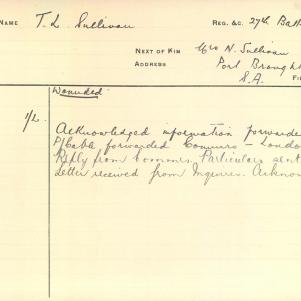 NAME T. L. Sullivan REG. &C. 27th Batt
NEXT OF KIN Mrs N. Sullivan
ADDRESS Port Brought
S.A.
Wounded
1/2. Acknowledged information forwarde
P/Cable forwarded Commrs - Londo
Reply from Commrs. Particulars sent
Letter received from Inquirer. Acknow